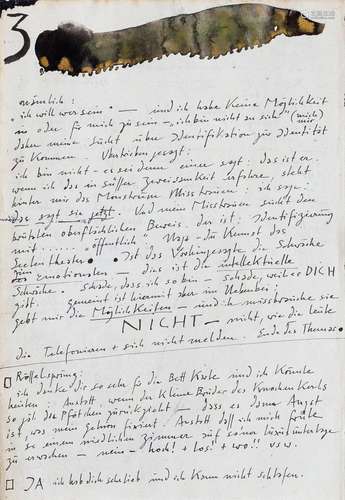 3
nämlich:
"ich will wer sein" — und ich habe keine Möglichkeit
in oder für mich zu sein — "ich bin nicht zu sich" (mich)
Daher meine Sucht über Identifikation zur Identität
zu kommen. gesagt:
ich bin nicht — es sei denn einer sagt: das ist er.
wenn ich das in süsser Zweisamkeit erfahre, steht
hinter mir das Monstrum Misstrauen: ich sag:
das sagt sie jetzt. Und mein Misstrauen sucht den
brutalen oberflächlichen Beweis. der ist: Identifizierung
mit ..... öffentlich. die Kunst das
Seelentheater. Ist das Vorhingesagte die Schwäche
des Emotionalen — dies ist die intellektuelle
Schwäche. Schade, dass ich so bin — schade, weil es DICH
gibt. gemeint ist hiermit aber im Nebenbei:
gebt mir die Möglichkeiten — und ich missbrauche sie
NICHT — nicht, wie die Leute
die Telefonieren + sich nicht melden. Ende des Themas.
Rösselsprung:
ich danke dir so sehr für die Bett Kiste und ich könnte
heulen: Anstatt, wenn der kleine Bruder des Knaben Karls
so süss die Pfötchen zurückzieht — dass es dann Angst
ist, was mein Gehirn fixiert. Anstatt dass ich mich freute
in so einem niedlichen Zimmer auf seiner Luxusunterlage
zu erwachen — nein — hoch! + los! + wo!! usw.
JA ich hab dich sehr lieb und ich kann nicht schlafen.